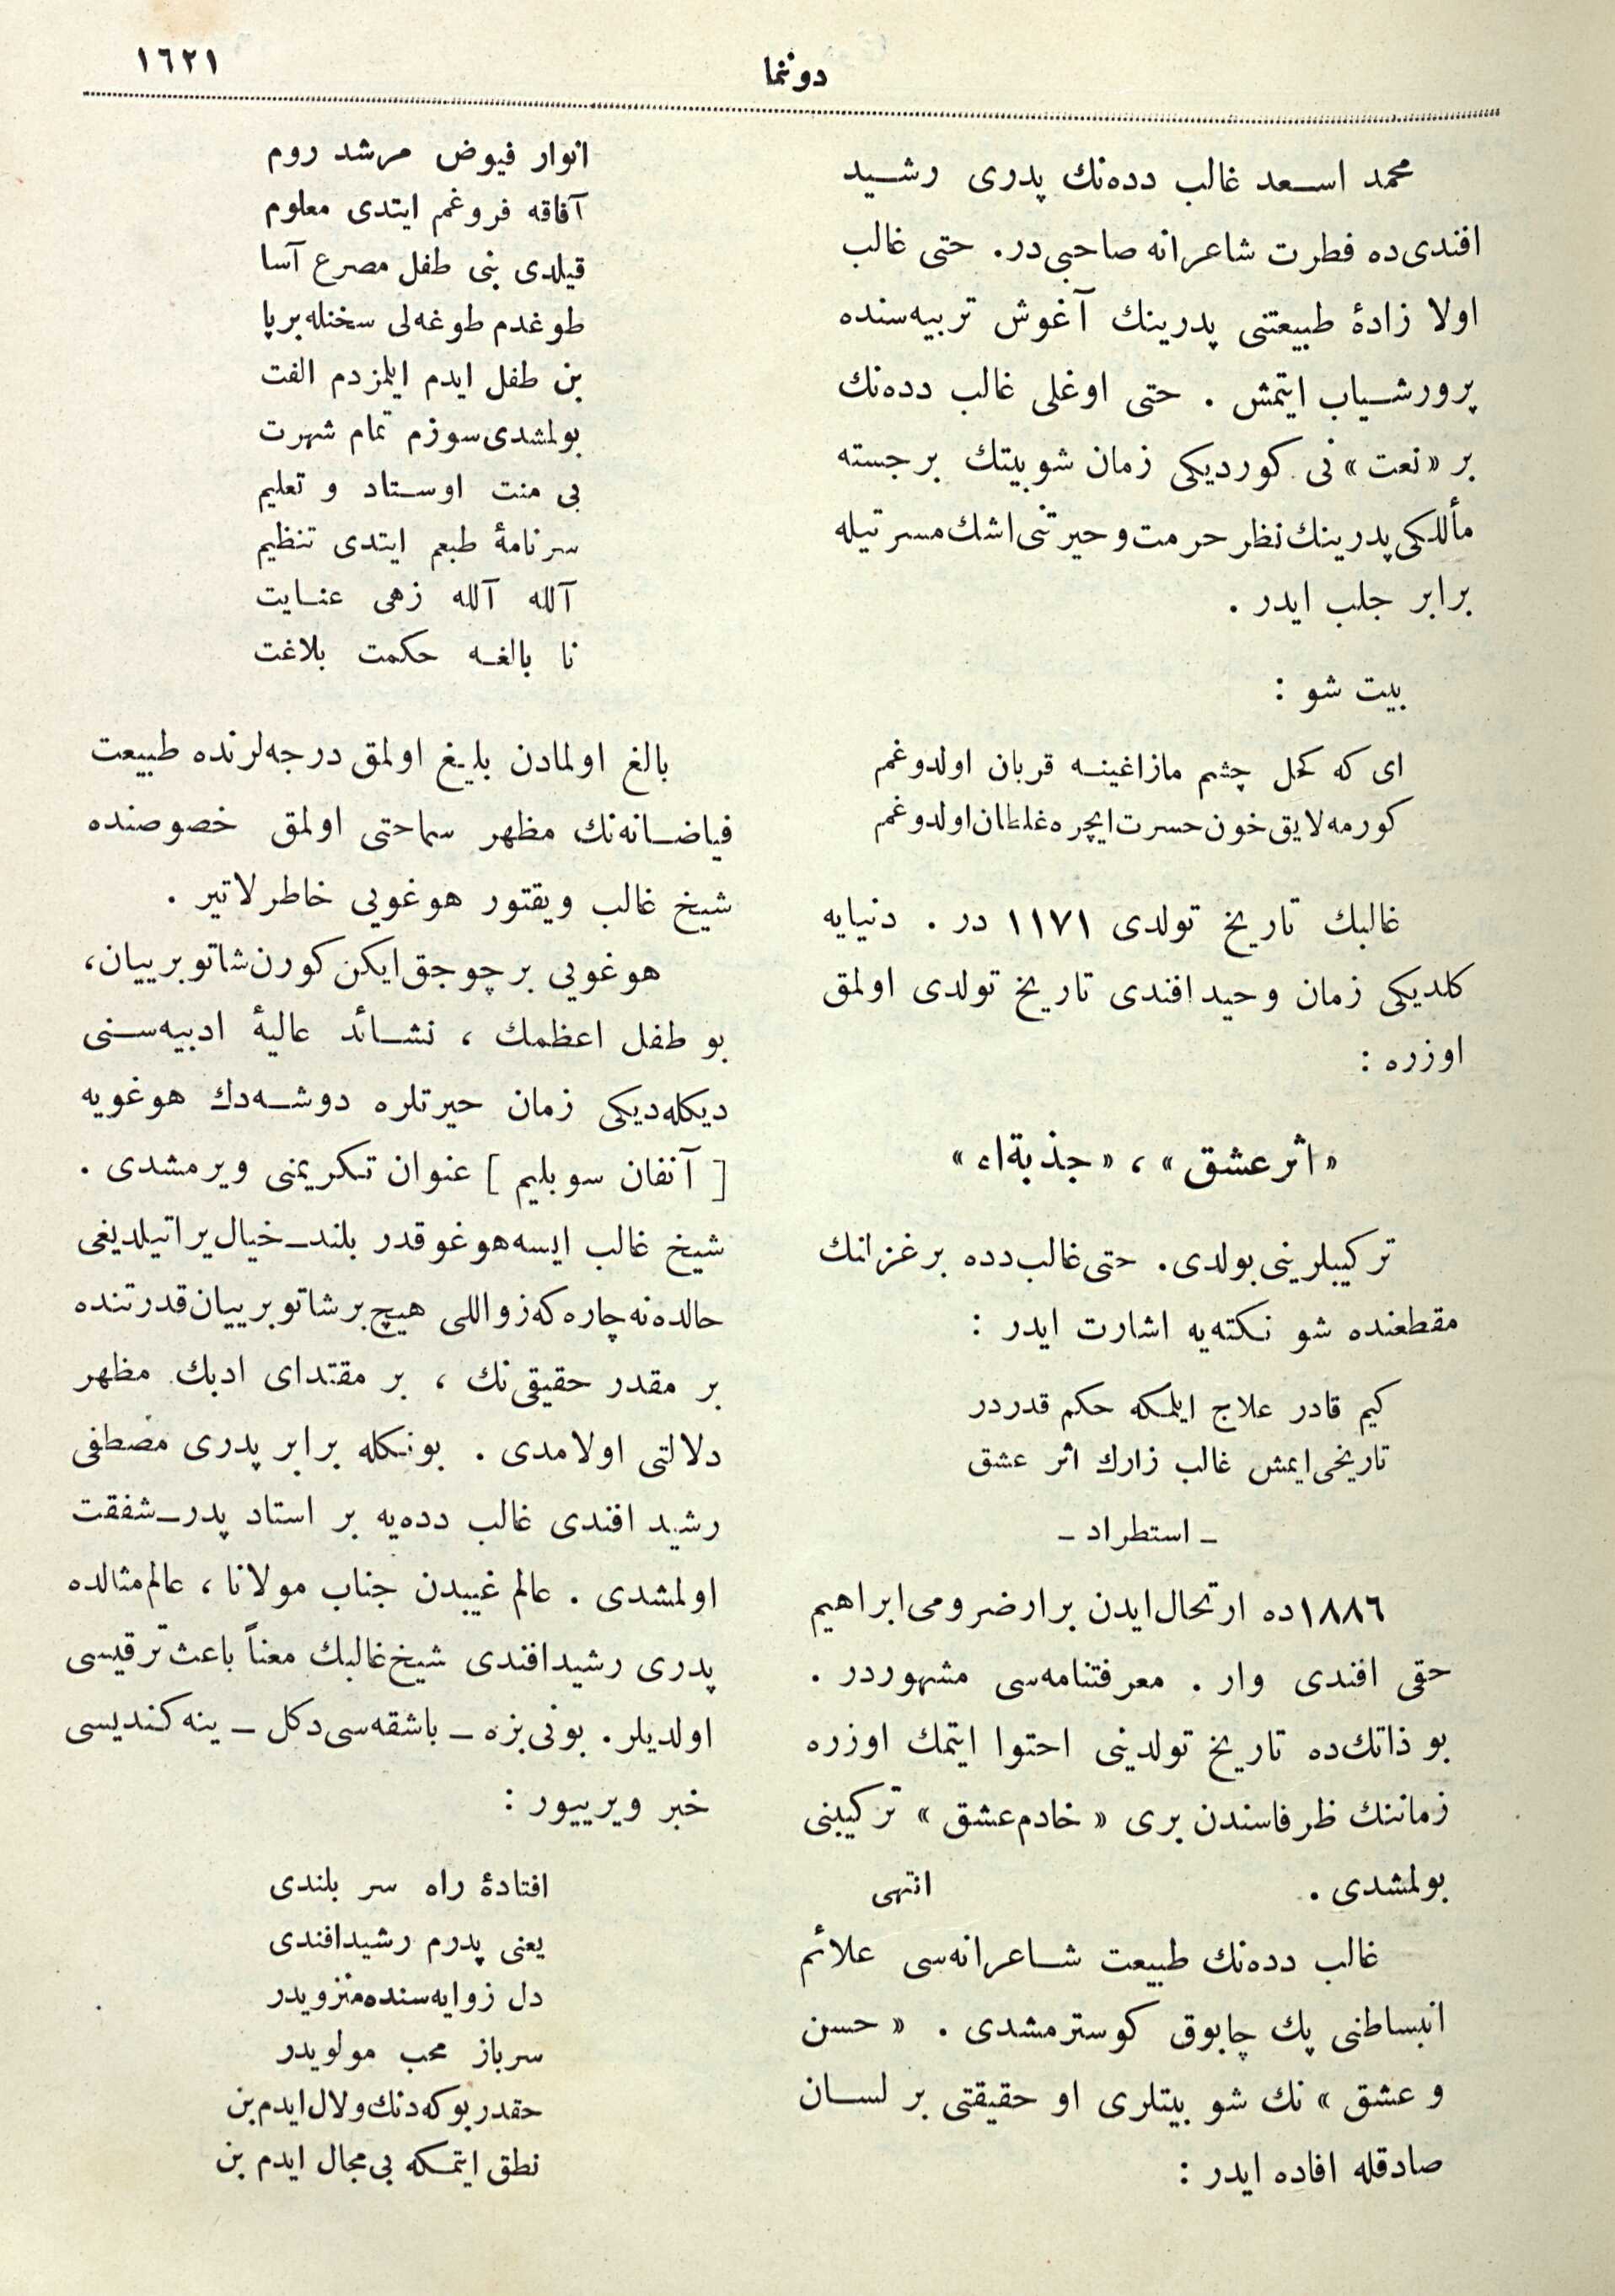 ١٦٢١
دوننما
محمد اسـعد غالب دده‌نك پدری رشـيد
افندی‌ده فطرت شاعرانه صاحبی‌در. حتی غالب
اولا زادهٔ طبيعتنی پدرينك آغوش تربيه‌سنده
پرورشـياب ايتمش . حتی اوغلی غالب دده‌نك
بر «نعت» نی كورديكی زمان شو بيتك برجسته
مأللكی پدرينك نظر حرمت و حيرتنی اشك مسرتيله
برابر جلب ايدر .
بيت شو :
ای كه كحل چشم مازاغينـه قربان اولدوغم
كورمه لايق خون حسرت ايچره غلطان اولدوغم
غالبك تاريخ تولدی ١١٧١ در . دنيايه
كلديكی زمان وحيد افندی تاريخ تولدی اولمق
اوزره :
«اثر عشق» ، «جذبة‌اء»
تركيبلرينی بولدی. حتی غالب دده بر غزلنك
مقطعنده شو نكته‌يه اشارت ايدر :
كيم قادر علاج ايلمكه حكم قدردر
تاريخی ايمش غالب زارك اثر عشق
ـ استطراد ـ
١٨٨٦ده ارتحال ايدن بر ارضرومی ابراهيم
حقی افندی وار . معرفتنامه‌سی مشهوردر .
بو ذاتك‌ده تاريخ تولدينی احتوا ايتمك اوزره
زماننك ظرفاسندن بری « خادم عشق » تركيبنی
بولمشدی . انتهی
غالب دده‌نك طبيعت شـاعرانه‌سی علائم
انبساطنی پك چابوق كوسترمشدی . « حسن
و عشق » نك شو بيتلری او حقيقتی بر لسـان
صادقله افاده ايدر :
انوار فيوض مرشد روم
آفاقه فروغم ايتدی معلوم
قيلدی بنی طفل مصرع آسا
طوغدم طوغه‌لی سخنله بر پا
بن طفل ايدم ايلمزدم الفت
بولمشدی سوزم تمام شهرت
بی منت اوسـتاد و تعليم
سرنامهٔ طبعم ايتدی تنظيم
آلله آلله زهی عنـايت
نا بالغـه حكمت بلاغت
بالغ اولمادن بليغ اولمق درجه‌لرنده طبيعت
فياضـانه‌نك مظهر سماحتی اولمق خصوصنده
شيخ غالب ويقتور هوغويی خاطرلاتير .
هوغويی بر چوجق ايكن كورن شاتوبرييان،
بو طفل اعظمك ، نشـائد عاليهٔ ادبيه‌سـنی
ديكله‌ديكی زمان حيرتلره دوشـه‌رك هوغويه
[ آنفان سوبليم ] عنوان تكريمنی ويرمشدی .
شيخ غالب ايسه هوغو قدر بلندـ خيال يراتيلديغی
حالده نه چاره كه زواللی هيچ بر شاتوبرييان قدرتنده
بر مقدر حقيقی‌نك ، بر مقتدای ادبك مظهر
دلالتی اولامدی . بونكله برابر پدری مصطفی
رشيد افندی غالب دده‌يه بر استاد پدرـ شفقت
اولمشدی . عالم غيبدن جناب مولانا ، عالم مثالده
پدری رشيد افندی شيخ غالبك معناً باعث ترقيسی
اولديلر. بونی بزه ـ باشقه‌سی دكل ـ ينه كنديسی
خبر ويرييور :
افتادهٔ راه سر بلندی
يعنی پدرم رشيد افندی
دل زوايه‌سنده منزويدر
سرباز محب مولويدر
حقدر بو كه دنك و لال ايدم بن
نطق ايتمكه بی مجال ايدم بن